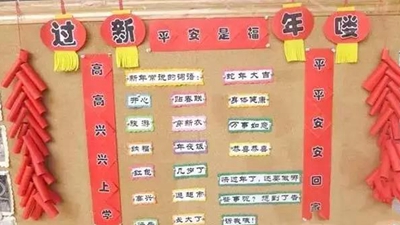 过新年喽
平安是福
高高兴兴上学
平平安安回家
新年常说的词语:
蛇年大吉
开心
贴春联
身体健康
旅游
穿新衣
万事如意
祝福
年夜饭
恭喜恭喜
红包
几岁了
高兴
逛超市
长大了
快过年了,还要做哪
些事呢?想到了告
诉我哦!